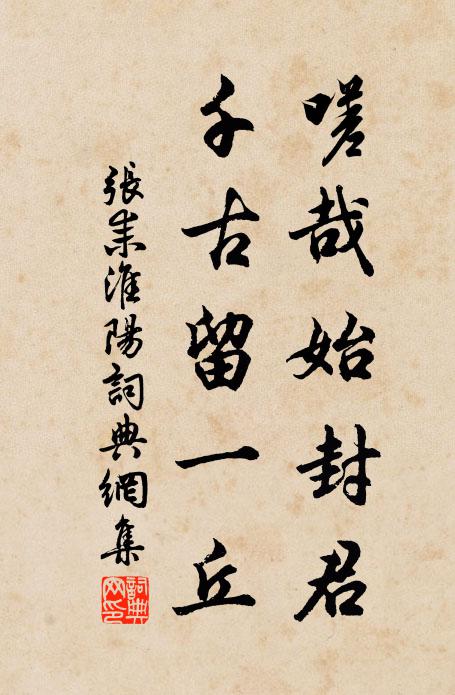 嗟哉始封君
千古留一丘
張耒淮陽詞典網集
詞典網印